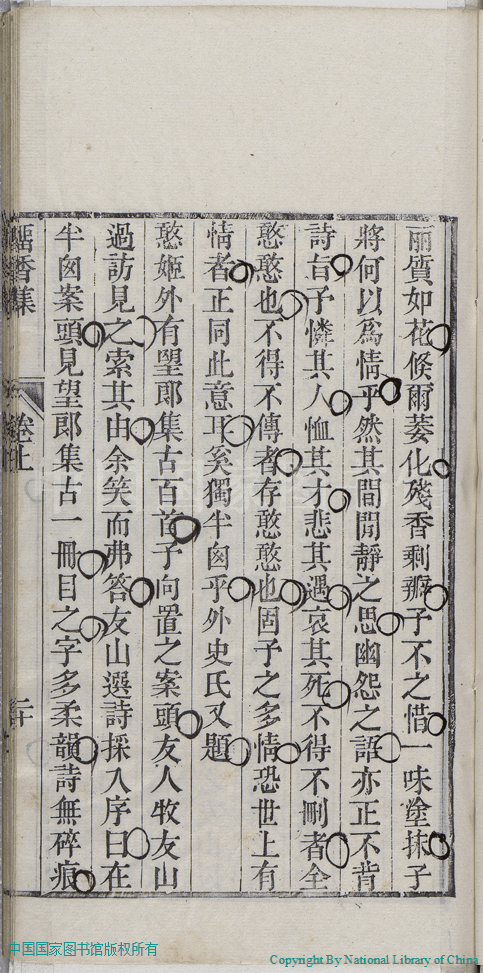 雨質如花倏爾萎化殘香剩瓣子不之惜一味塗抹子
將何以爲情乎然其間閒靜之思幽怨之語亦正不背
詩旨予憐其人恤其才悲其遇哀其死不得不刪者全
憨憨也不得不傳者存憨憨也固予之多情恐世上有
情者正同此意耳奚獨半囪乎外史氏又題
憨姬外有朢郎集古百首予向置之案頭友人牧友山
過訪見之索其由余笑而弗答友山選詩採入序曰在
半囪案頭見望郎集古一冊目之字多柔韻詩無碎痕
留香集 卷上 二十
中国国家图书馆版权所有
Copyright By National Library of China